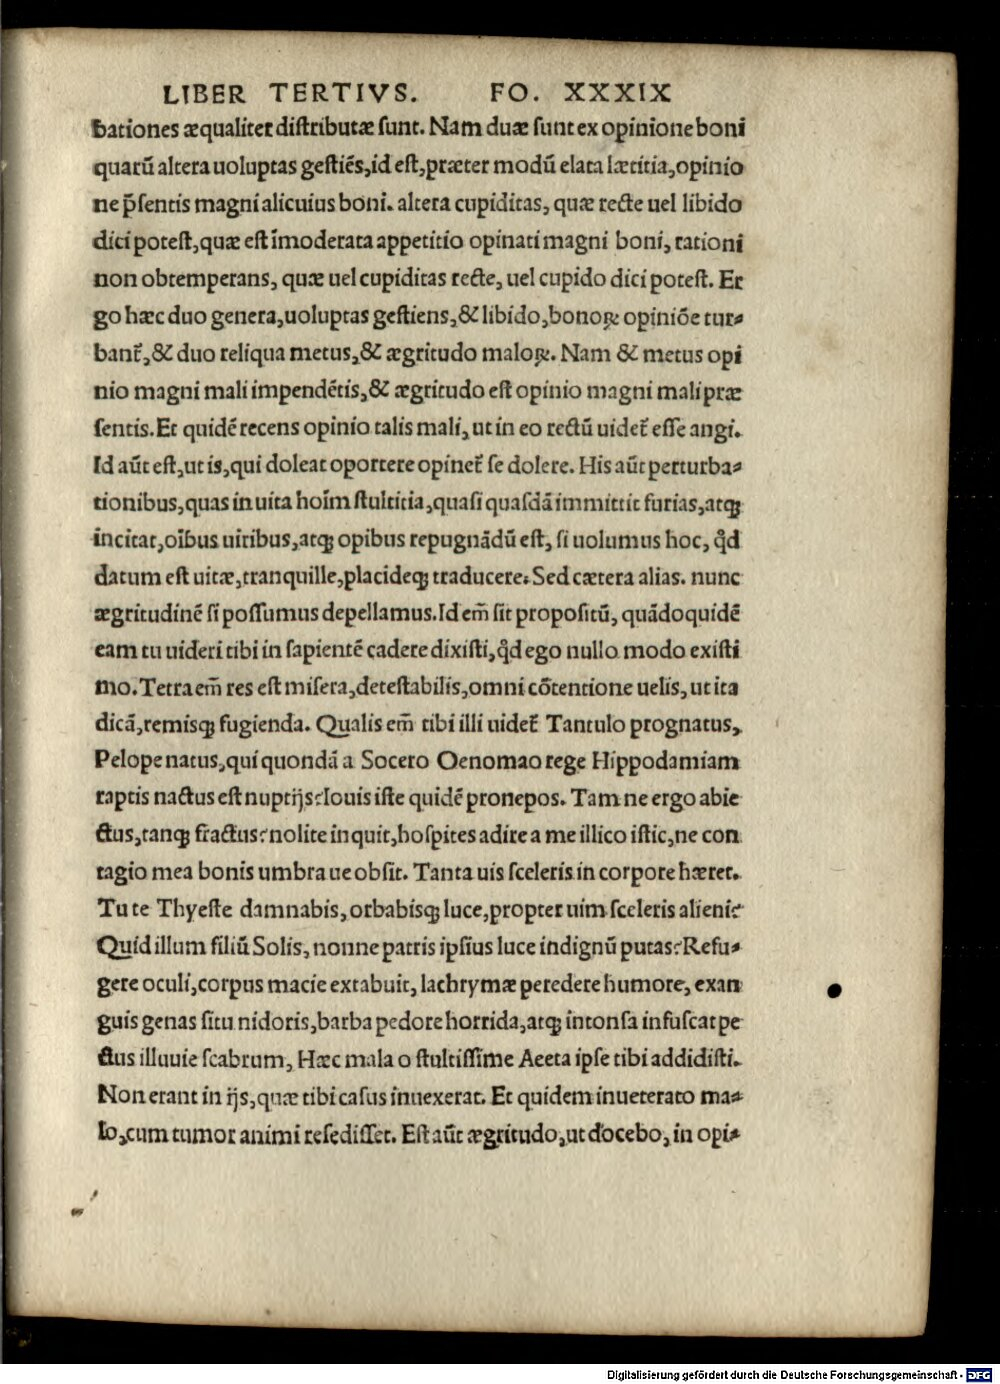 LIBER TERTIVS. FO. XXXIX
bationes æqualiter diſtributæ ſunt. Nam duæ ſunt ex opinione boni
quarū altera uoluptas geſtiēs, id eſt, præter modū elata lætitia, opinio
ne p̄ſentis magni alicuius boni. altera cupiditas, quæ recte uel libido
dici poteſt, quæ eſt īmoderata appetitio opinati magni boni, rationi
non obtemperans, quæ uel cupiditas recte, uel cupido dici poteſt. Er
go hæc duo genera, uoluptas geſtiens, & libido, bonoꝝ opiniōe tur⸗
bant̄, & duo reliqua metus, & ægritudo maloꝝ. Nam & metus opi
nio magni mali impendētis, & ægritudo eſt opinio magni mali præ
ſentis. Et quidē recens opinio talis mali, ut in eo rectū uidet̄ eſſe angi.
Id aūt eſt, ut is, qui doleat oportere opinet̄ ſe dolere. His aūt perturba⸗
tionibus, quas in uita hoīm ſtultitia, quaſi quaſdā immittit furias, atqꝫ
incitat, oībus uiribus, atqꝫ opibus repugnādū eſt, ſi uolumus hoc, qd̄
datum eſt uitæ, tranquille, placideqꝫ traducere. Sed cætera alias. nunc
ægritudinē ſi poſſumus depellamus. Id em̄ ſit propoſitū, quādoquidē
eam tu uideri tibi in ſapientē cadere dixiſti, qd̄ ego nullo modo exiſti
mo. Tetra em̄ res eſt miſera, deteſtabilis, omni cōtentione uelis, ut ita
dicā, remisqꝫ fugienda. Qualis em̄ tibi illi uidet̄ Tantulo prognatus,
Pelope natus, qui quondā a Socero Oenomao rege Hippodamiam
raptis nactus eſt nuptijs? Iouis iſte quidē pronepos. Tam ne ergo abie
ctus, tanqꝫ fractus? nolite inquit, hoſpites adire a me illico iſtic, ne con
tagio mea bonis umbra ue obſit. Tanta uis ſceleris in corpore hæret.
Tu te Thyeſte damnabis, orbabisqꝫ luce, propter uim ſceleris alieni?
Quid illum filiū Solis, nonne patris ipſius luce indignū putas? Refu⸗
gere oculi, corpus macie extabuit, lachrymæ peredere humore, exan
guis genas ſitu nidoris, barba pedore horrida, atqꝫ intonſa infuſcat pe
ctus illuuie ſcabrum, Hæc mala o ſtultiſſime Aeeta ipſe tibi addidiſti.
Non erant in ijs, quæ tibi caſus inuexerat. Et quidem inueterato ma⸗
lo, cum tumor animi reſediſſet. Eſt aūt ægritudo, ut docebo, in opi⸗
Digitalisierung gefördert durch die Deutsche Forschungsgemeinschaft - DFG